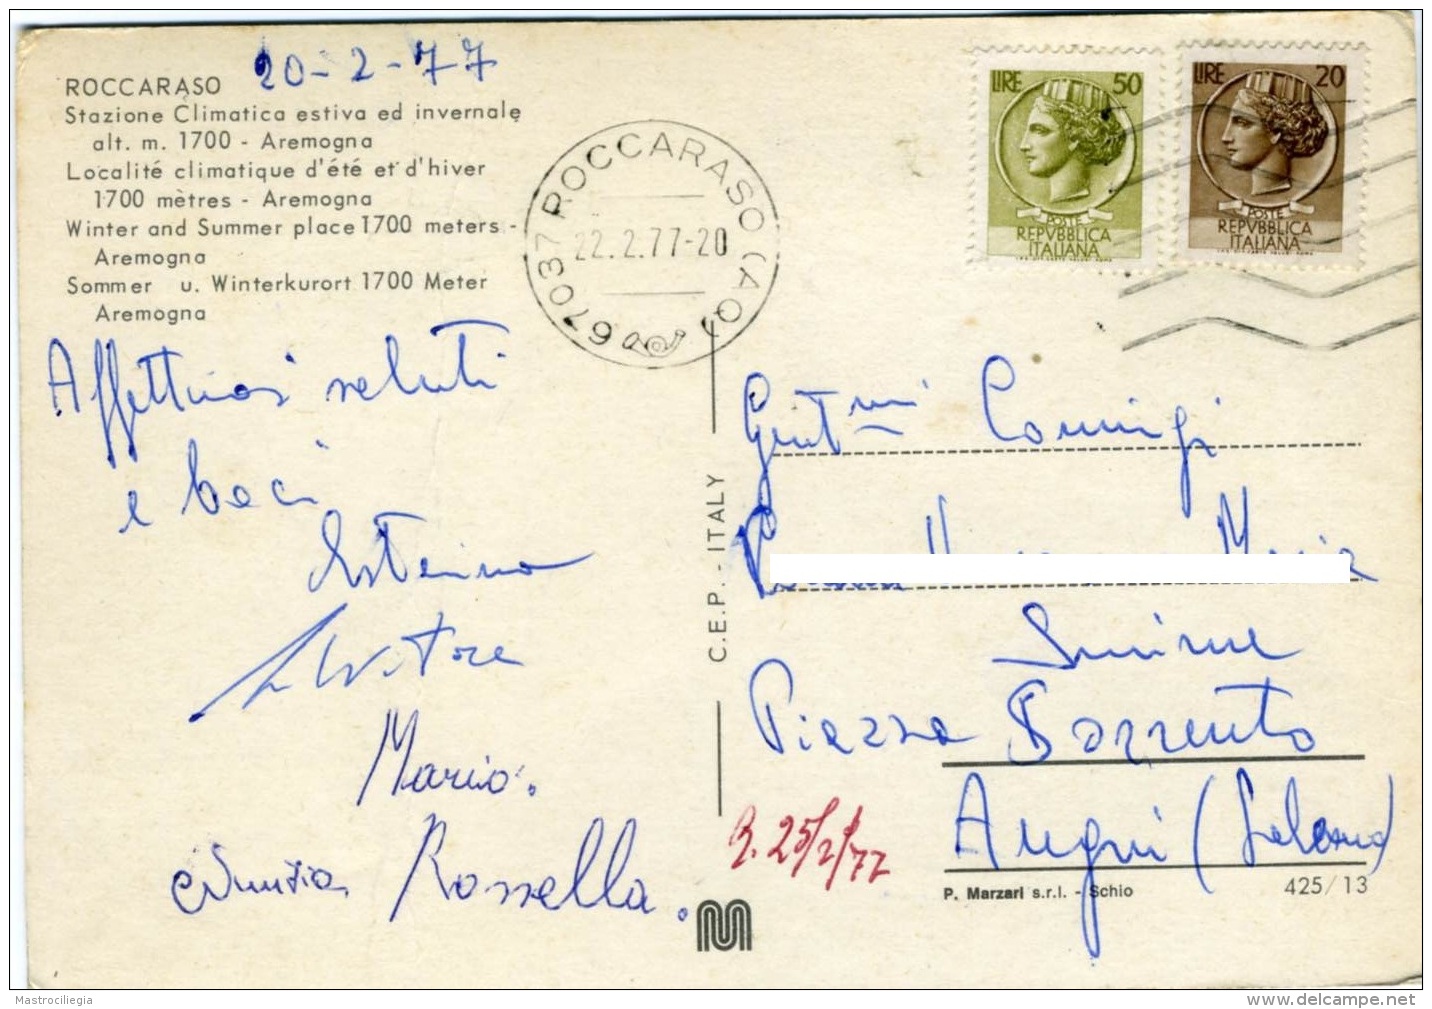 ROCCARASO 20-2-77
Stazione Climatica estiva ed invernale
alt. m. 1700 - Aremogna
Localité climatique d'été et d'hiver
1700 mètres - Aremogna
Winter and Summer place 1700 meters -
Aremogna
Sommer u. Winterkurort 1700 Meter
Aremogna
67037 ROCCARASO (AQ)
22.2.77-20
LIRE 50
POSTE
REPVBBLICA
ITALIANA
LIRE 20
POSTE
REPVBBLICA
ITALIANA
Affettuosi saluti
e baci
Salvatore
Mario.
Nunzia Rossella.
C.E.P. - ITALY
Gent.mi Coniugi
Maria
Piazza Sorrento
Angri (Salerno)
R. 25/2/77
P. Marzari s.r.l. - Schio
425/13
Mastrociliegia
www.delcampe.net